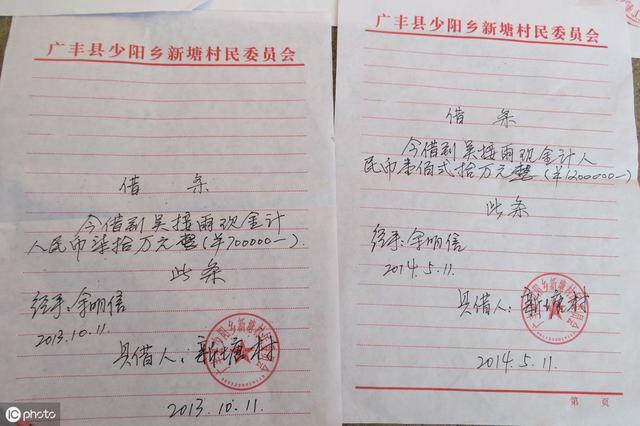 广丰县少阳乡新塘村民委员会
借 条
今借到吴接雨现金计
人民币柒拾万元整(¥700000-).
此条
经手:余明信
2013.10.11.
具借人:新塘村
2013.10.11.
广丰县少阳乡新塘村民委员会
借 条
今借到吴接雨现金计人
民币壹佰弍拾万元整(¥1200000-)
此条
经手:余明信
2014.5.11.
具借人:新塘村
2014.5.11.
第 页
iC photo